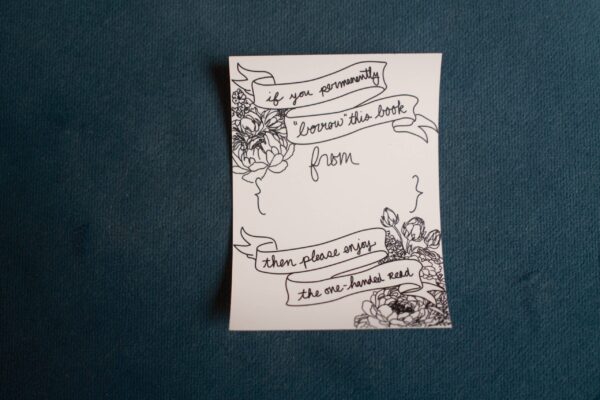 if you permenently
"borrow" this book
from
{ }
then please enjoy
the one-handed read